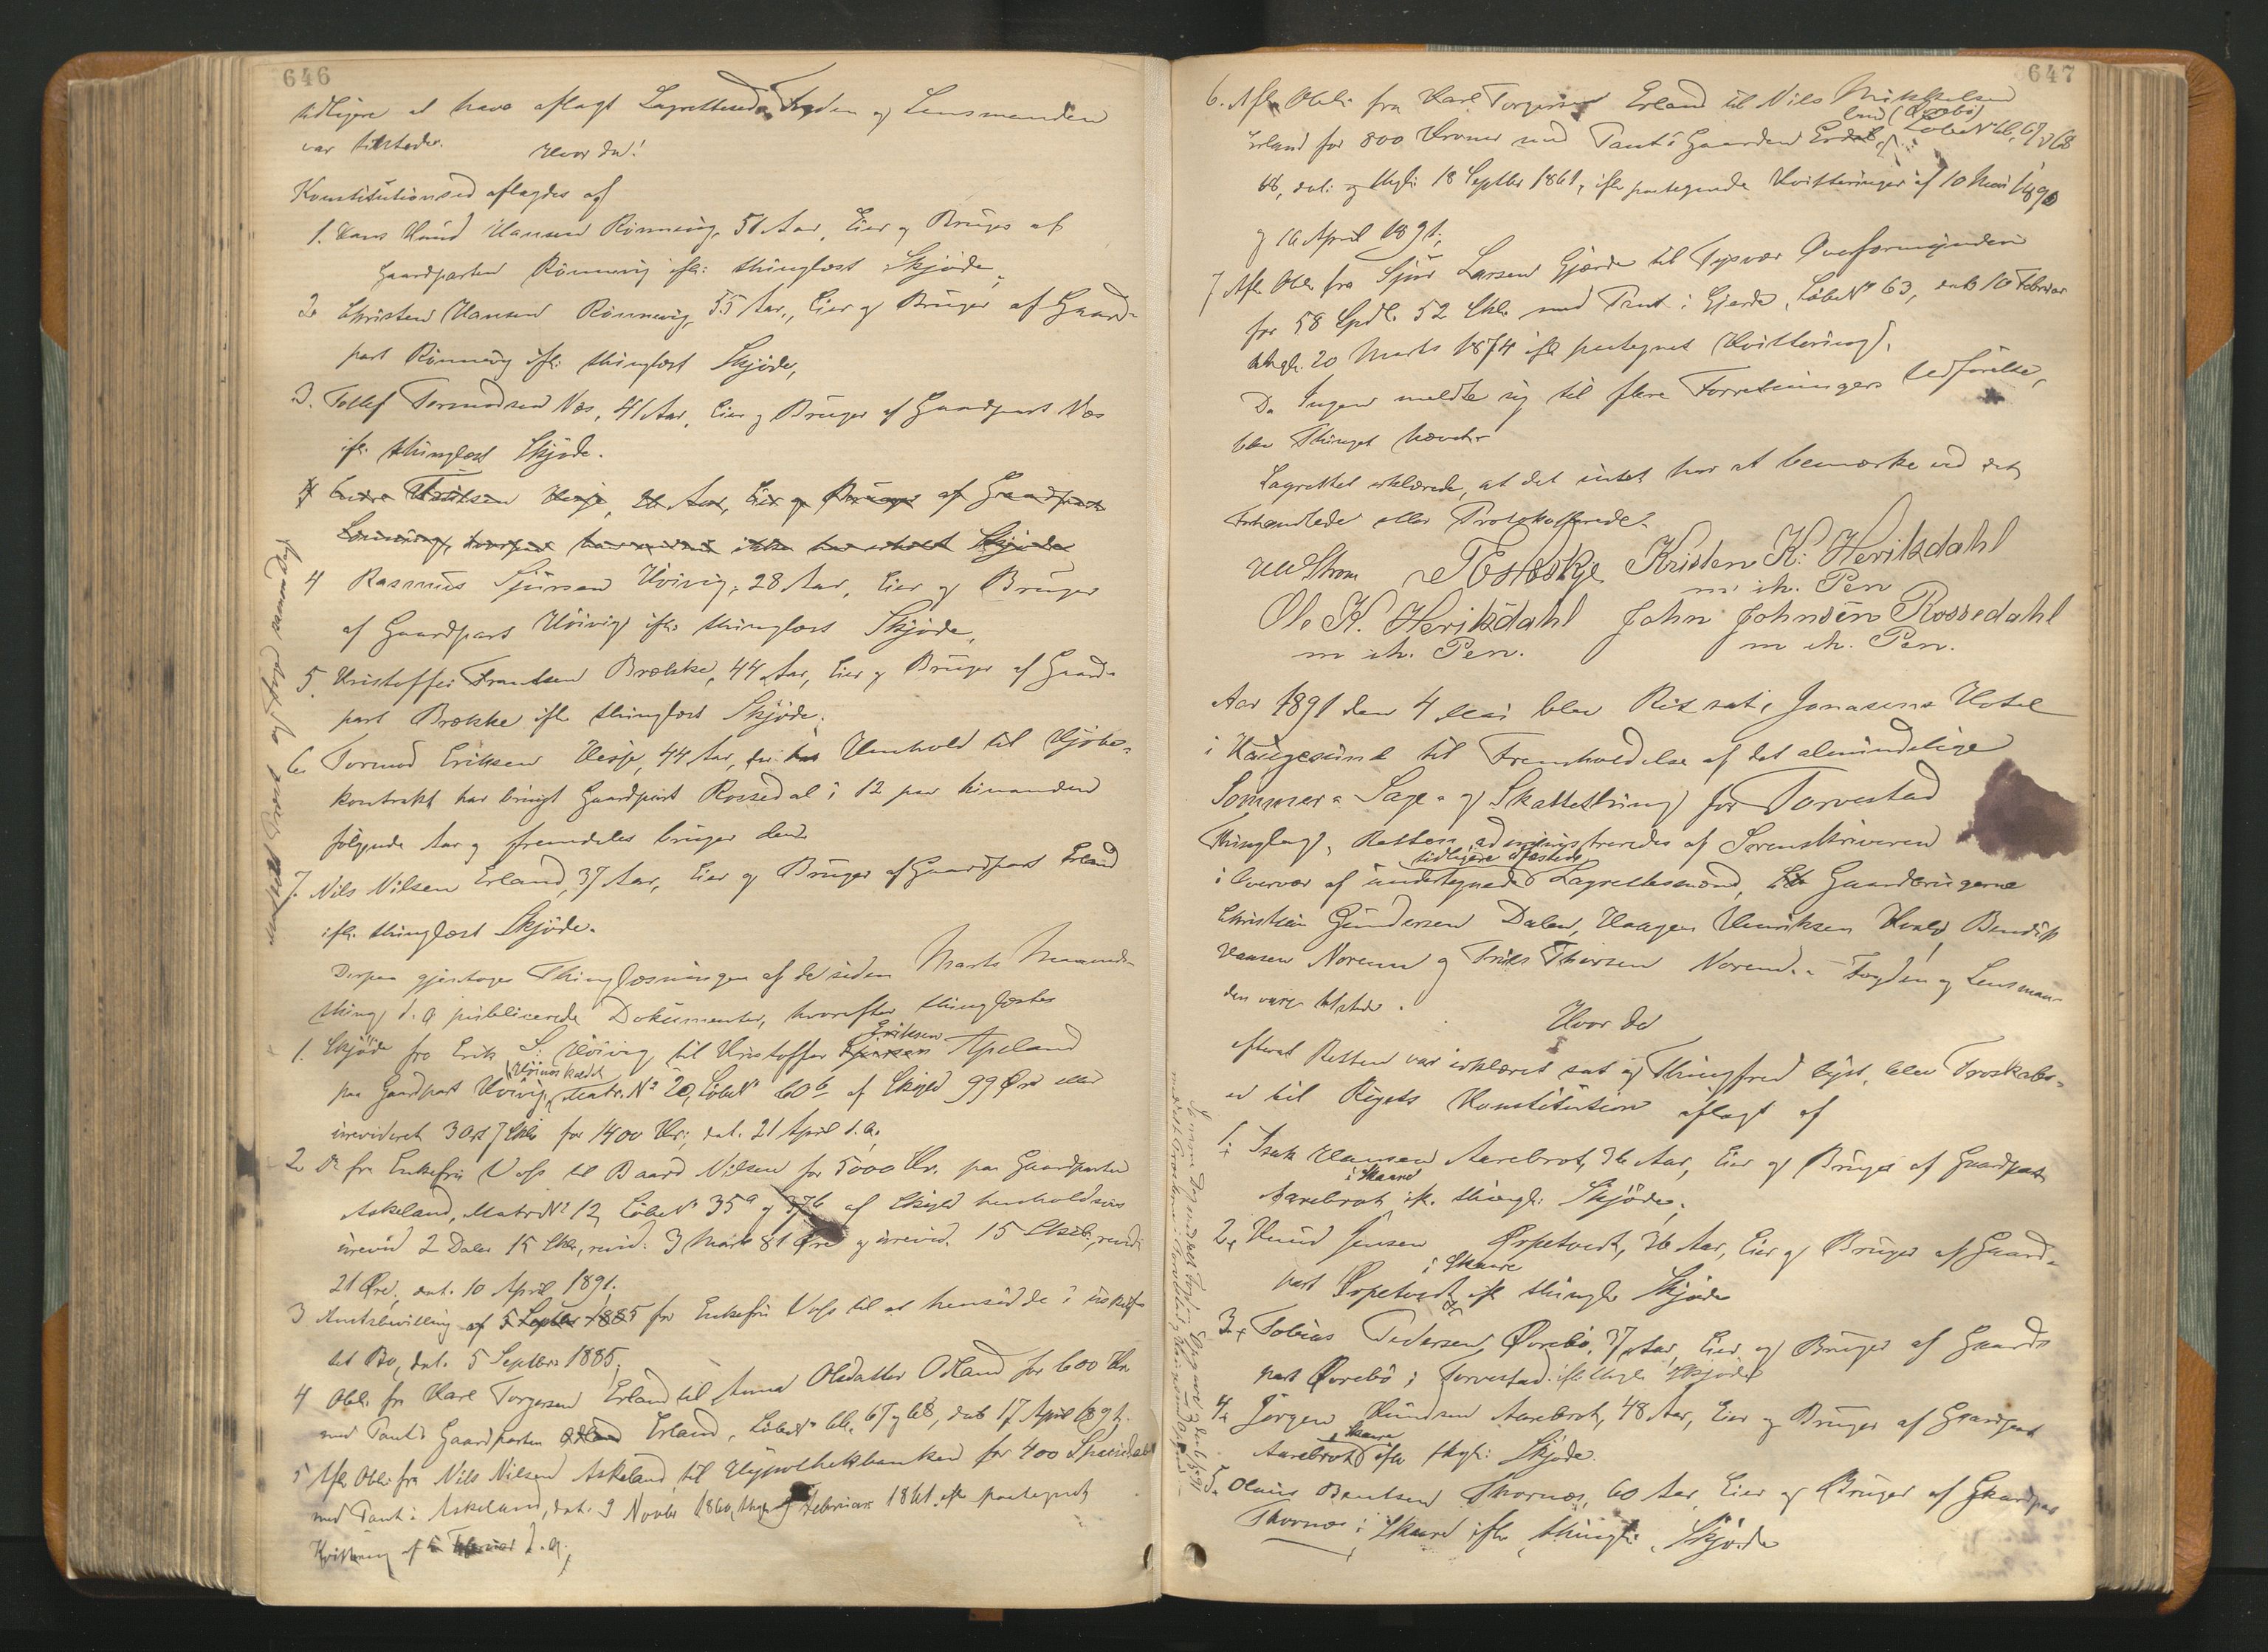 646
tidligere at have aflagt Lagrettesed. Fogden og Lensmanden
var tilstede.
Hvor da!
Konstitutionsed aflagdes af
1. Hans Knud Hansen Rönnevig, 51 Aar, Eier og Bruger af
Gaardparten Rönnevig ifl: thinglæst Skjöde,
2. Christen Hansen Rönnevig, 55 Aar, Eier og Bruger af Gaard-
part Rönnevig ifl: thinglæst Skjöde,
3. Tollef Tormodsen Næs, 41 Aar, Eier og Bruger af Gaardpart Næs
ifl: thinglæst Skjöde.
Aar, Eier og Bruger af Gaardpart
ikke Skjöde
4 Rasmus Sjursen Höivig, 28 Aar, Eier og Bruger
af Gaardpart Höivig ifl: thinglæst Skjöde,
5. Kristoffer Frantsen Brække, 44 Aar, Eier og Bruger af Gaard-
part Brække ifl: thinglæst Skjöde,
6. Tormod Eriksen Hesje, 44 Aar, der i Henhold til Kjöbe-
kontrakt har brugt Gaardpart Rossedal i 12 paa hinanden
følgende Aar og fremdeles bruger den.
7. Nils Nilsen Erland, 37 Aar, Eier og Bruger af Gaardpart Erland
ifl: thinglæst Skjöde.
Derpaa gjentoges Thinglæsningen af de siden Marts Maaneds-
thing d. A. publicerede Dokumenter, hvorefter thinglæstes
1. Skjöde fra Erik S. Höivig til Kristoffer Sjursen Eriksen Apeland
paa Gaardpart Höivig, Höinæs kaldet Matr. No 20, Löbe No 60 b af Skyld 99 Öre eller
urevideret 3 Ort 7 Skl: for 1400 Kr:, dat. 21 April d. A.,
2. Do fra Enkefru Voss til Baard Nilsen for 5000 Kr. paa Gaardparten
Askeland, Matr No 12, Löbe No 35 a og 37 b af Skyld henholdsvis
urevid 2 Daler 15 Skl, revid. 3 Mark 81 Öre og urevid. 15 Skil, revid:
21 Öre, dat. 10 April 1891,
3 Amtsbevilling af 5 Septbr 1885 for Enkefru Voss til at hensidde i uskiftet
Bo, dat. 5 Septbr 1885,
4 Obli. fra Karl Torgersen Erland til Anna Olsdatter Odland for 600 Kr.
med Pant i Gaardparten Odland Erland, Löbe No 66, 67 og 68, dat 17 April 1891,
5 Afl: Obli. fra Nils Nilsen Askeland til Hypothekbanken for 400 Speciedaler
med Pant i Askeland, dat. 9 Novbr 1860, thgl. Februar 1861, ifl: paategnet
Kvittering af Februar d. A.,
647
6. Afl. Obli. fra Karl Torgersen Erland til Nils Mikkelsen
Erland for 800 Kroner med Pant i Gaarden Löbe No 66, 67 & 68
68, dat: og thgl: 18 Septbr 1861, ifl: paategnede Kvitteringer af 10 Mai 1890
og 16 April 1891,
7 Afl. Obli. fra Sjur Larsen Gjærde til Tysvær Overformynderi
for 58 Spdl. 52 Skl. med Pant i Gjerde, Löbe No 63, dat 10 Februar
thgl. 20 Marts 1874 ifl: paategnet Kvittering.
Da Ingen meldte sig til flere Forretningers Udförelse,
blev Thinget hævet.
Lagrettet erklærede, at det intet har at bemærke ved det
Forhandlede eller Protokollerede.
Kristen K. Heriksdahl
m ih. Pen
Ole K. Heriksdahl John Johnsen Rossedahl
m ih. Pen. m ih. Pen.
Aar 1891 den 4 Mai blev Ret sat i Jonasens Hotel
i Haugesund til Fremholdelse af det almindelige
Sommer- Sage- og Skattething for Torvestad
Thinglag. Retten administreredes af Sorenskriveren
i Overvær af undertegnede tidligere edfæstede Lagrettesmænd, Gaardbrugerne
Christian Gundersen Dalen, Haagen Henriksen Hvalø, Bendik
Hansen Norem og Friks Thorsen Norem. - Fogden og Lensman-
den vare tilstede.
Hvor da
efterat Retten var erklæret sat og Thingfred lyst, blev Troskabs-
ed til Rigets Konstitution aflagt af
1. Isak Hansen Aarebrot, 36 Aar, Eier og Bruger af Gaardpart
Aarebrot i Skaare ifl. thingl: Skjöde,
2. Knud Jensen Ørpetvedt, 36 Aar, Eier og Bruger af Gaard-
part Ørpetvedt i Skaare ifl thingl: Skjöde
3. Tobias Pedersen Øvrebö, 37 Aar, Eier og Bruger af Gaards
part Øvrebö i Torvestad ifl: thgl: Skjöde
4. Jörgen Knudsen Aarebrot, 48 Aar, Eier og Bruger af Gaardpart
Aarebrot i Skaare ifl: thgl: Skjöde.
5. Olaus Bentsen Thornæs, 60 Aar, Eier og Bruger af Gaardpart
Thornæs i Skaare ifl: thingl: Skjöde